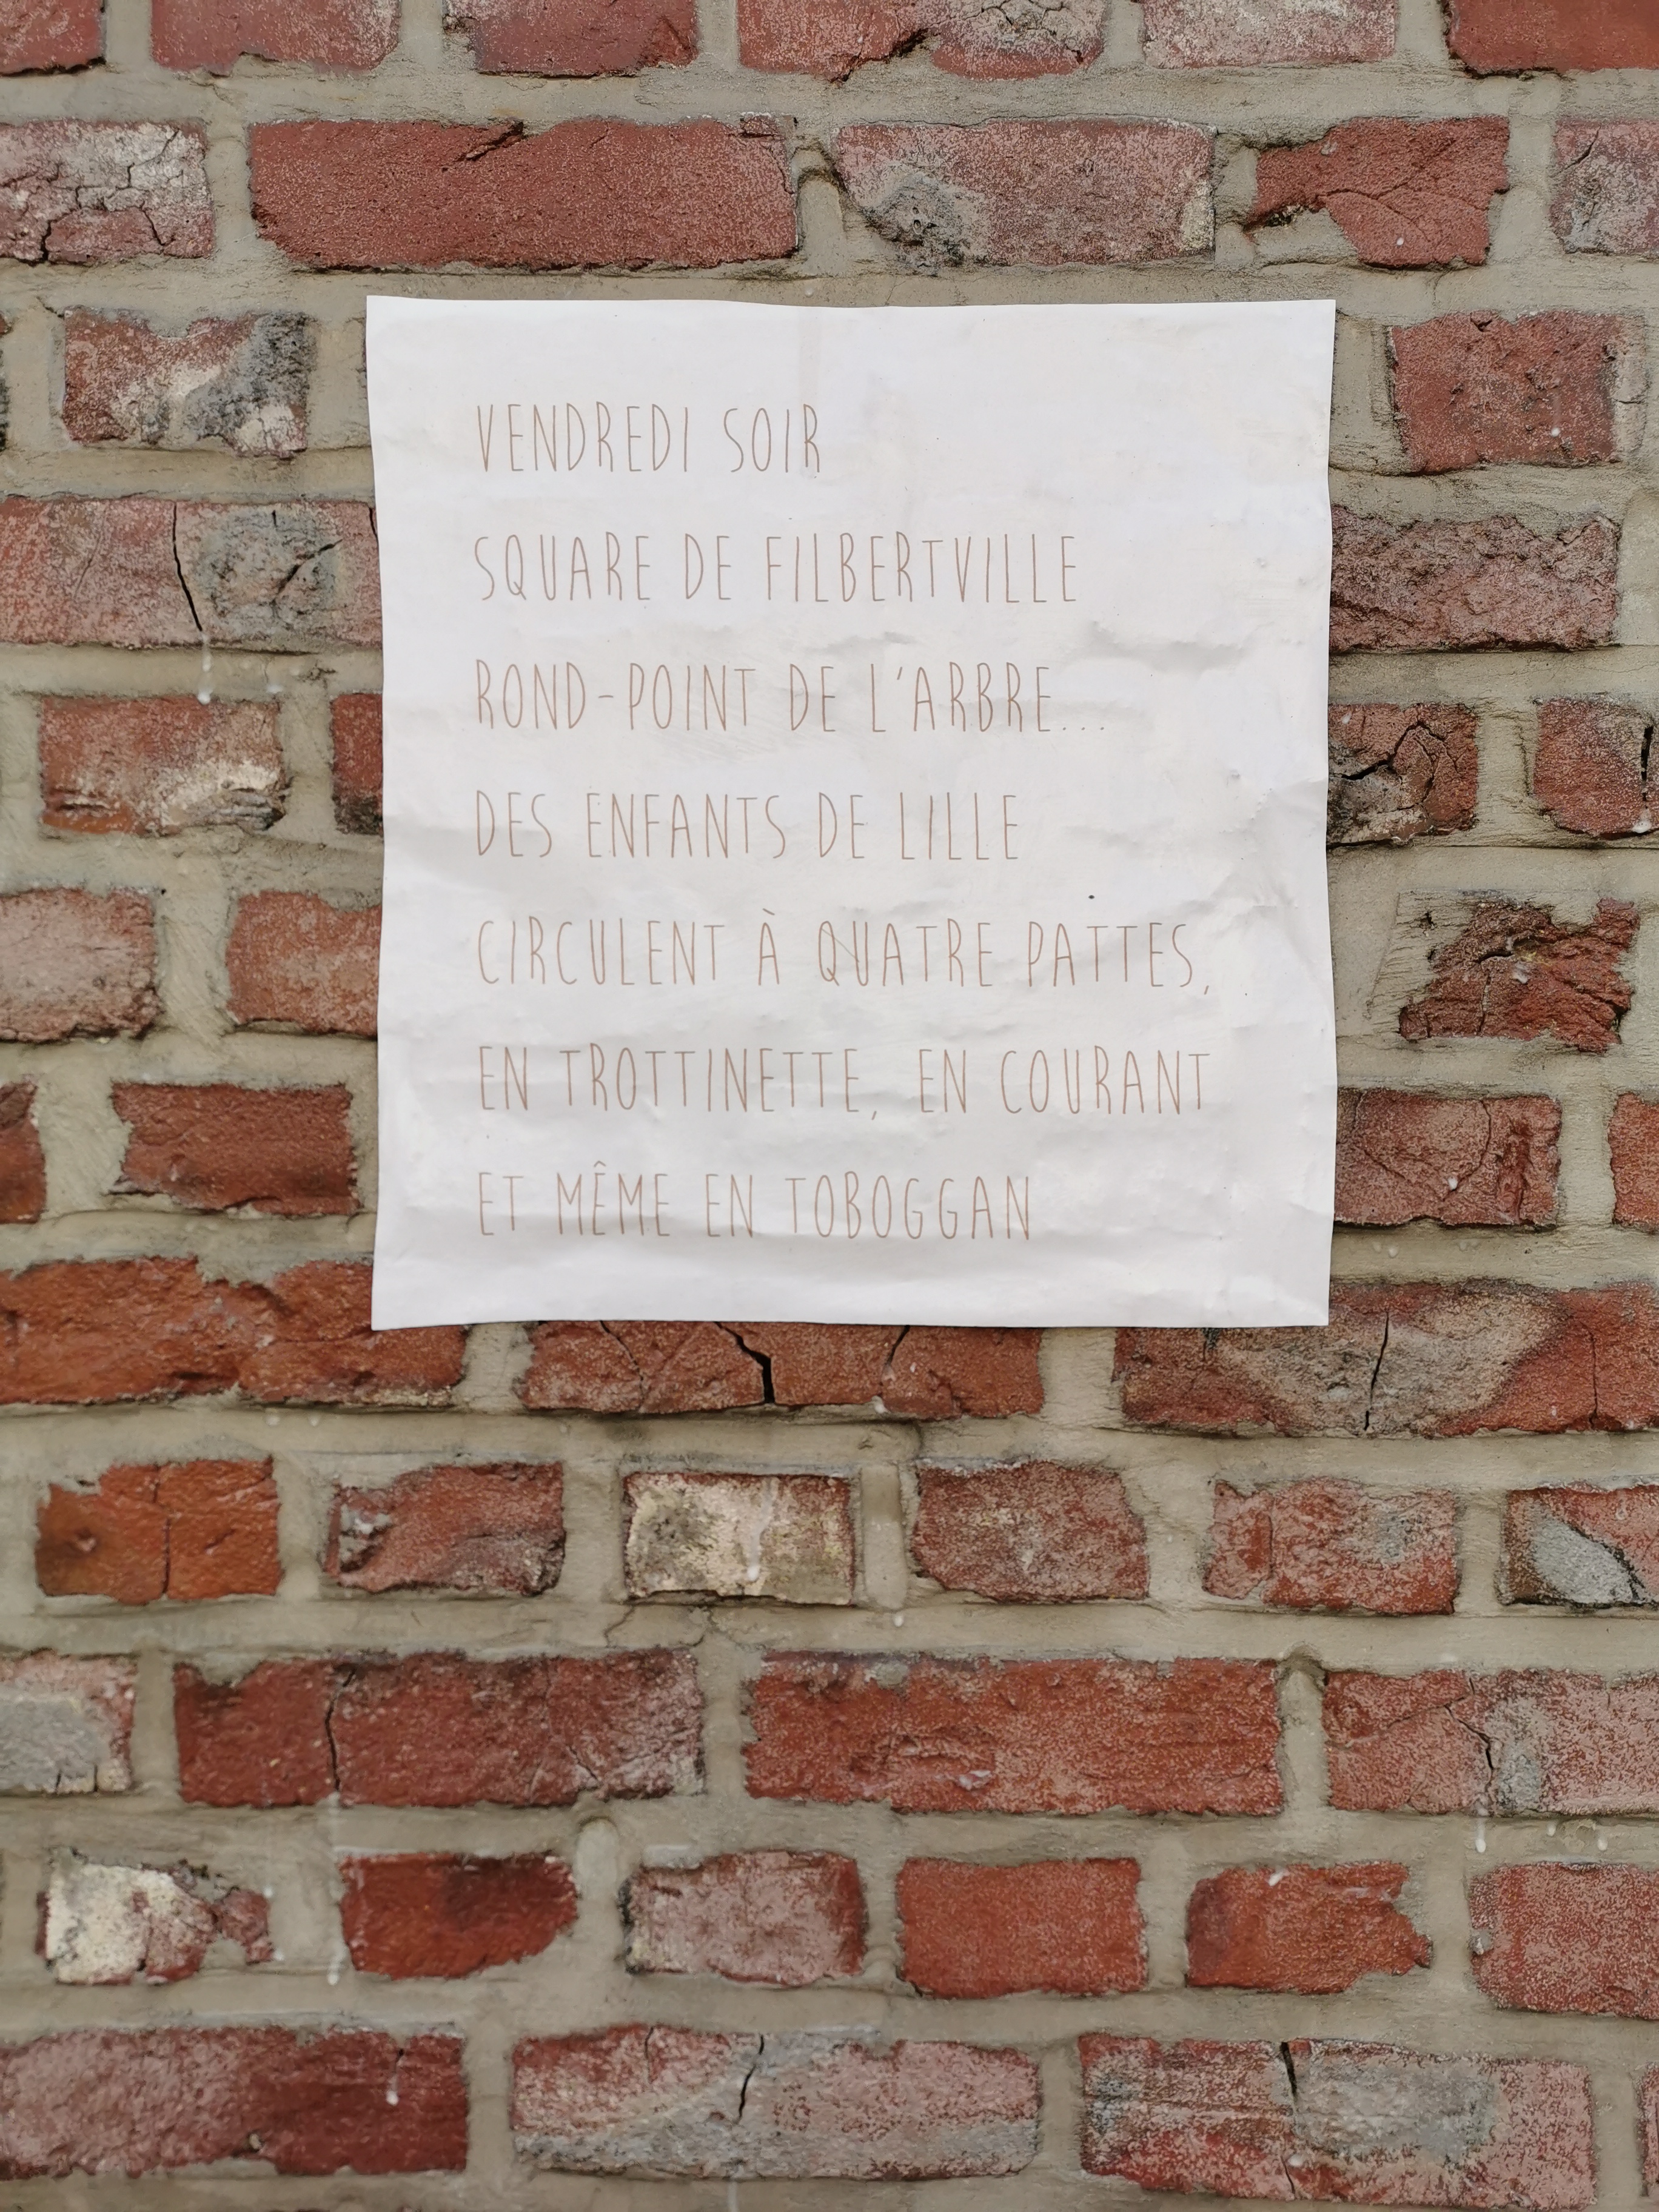 VENDREDI SOIR
SQUARE DE FILBERTVILLE
ROND-POINT DE L'ARBRE...
DES ENFANTS DE LILLE
CIRCULENT À QUATRE PATTES,
EN TROTTINETTE, EN COURANT
ET MÊME EN TOBOGGAN